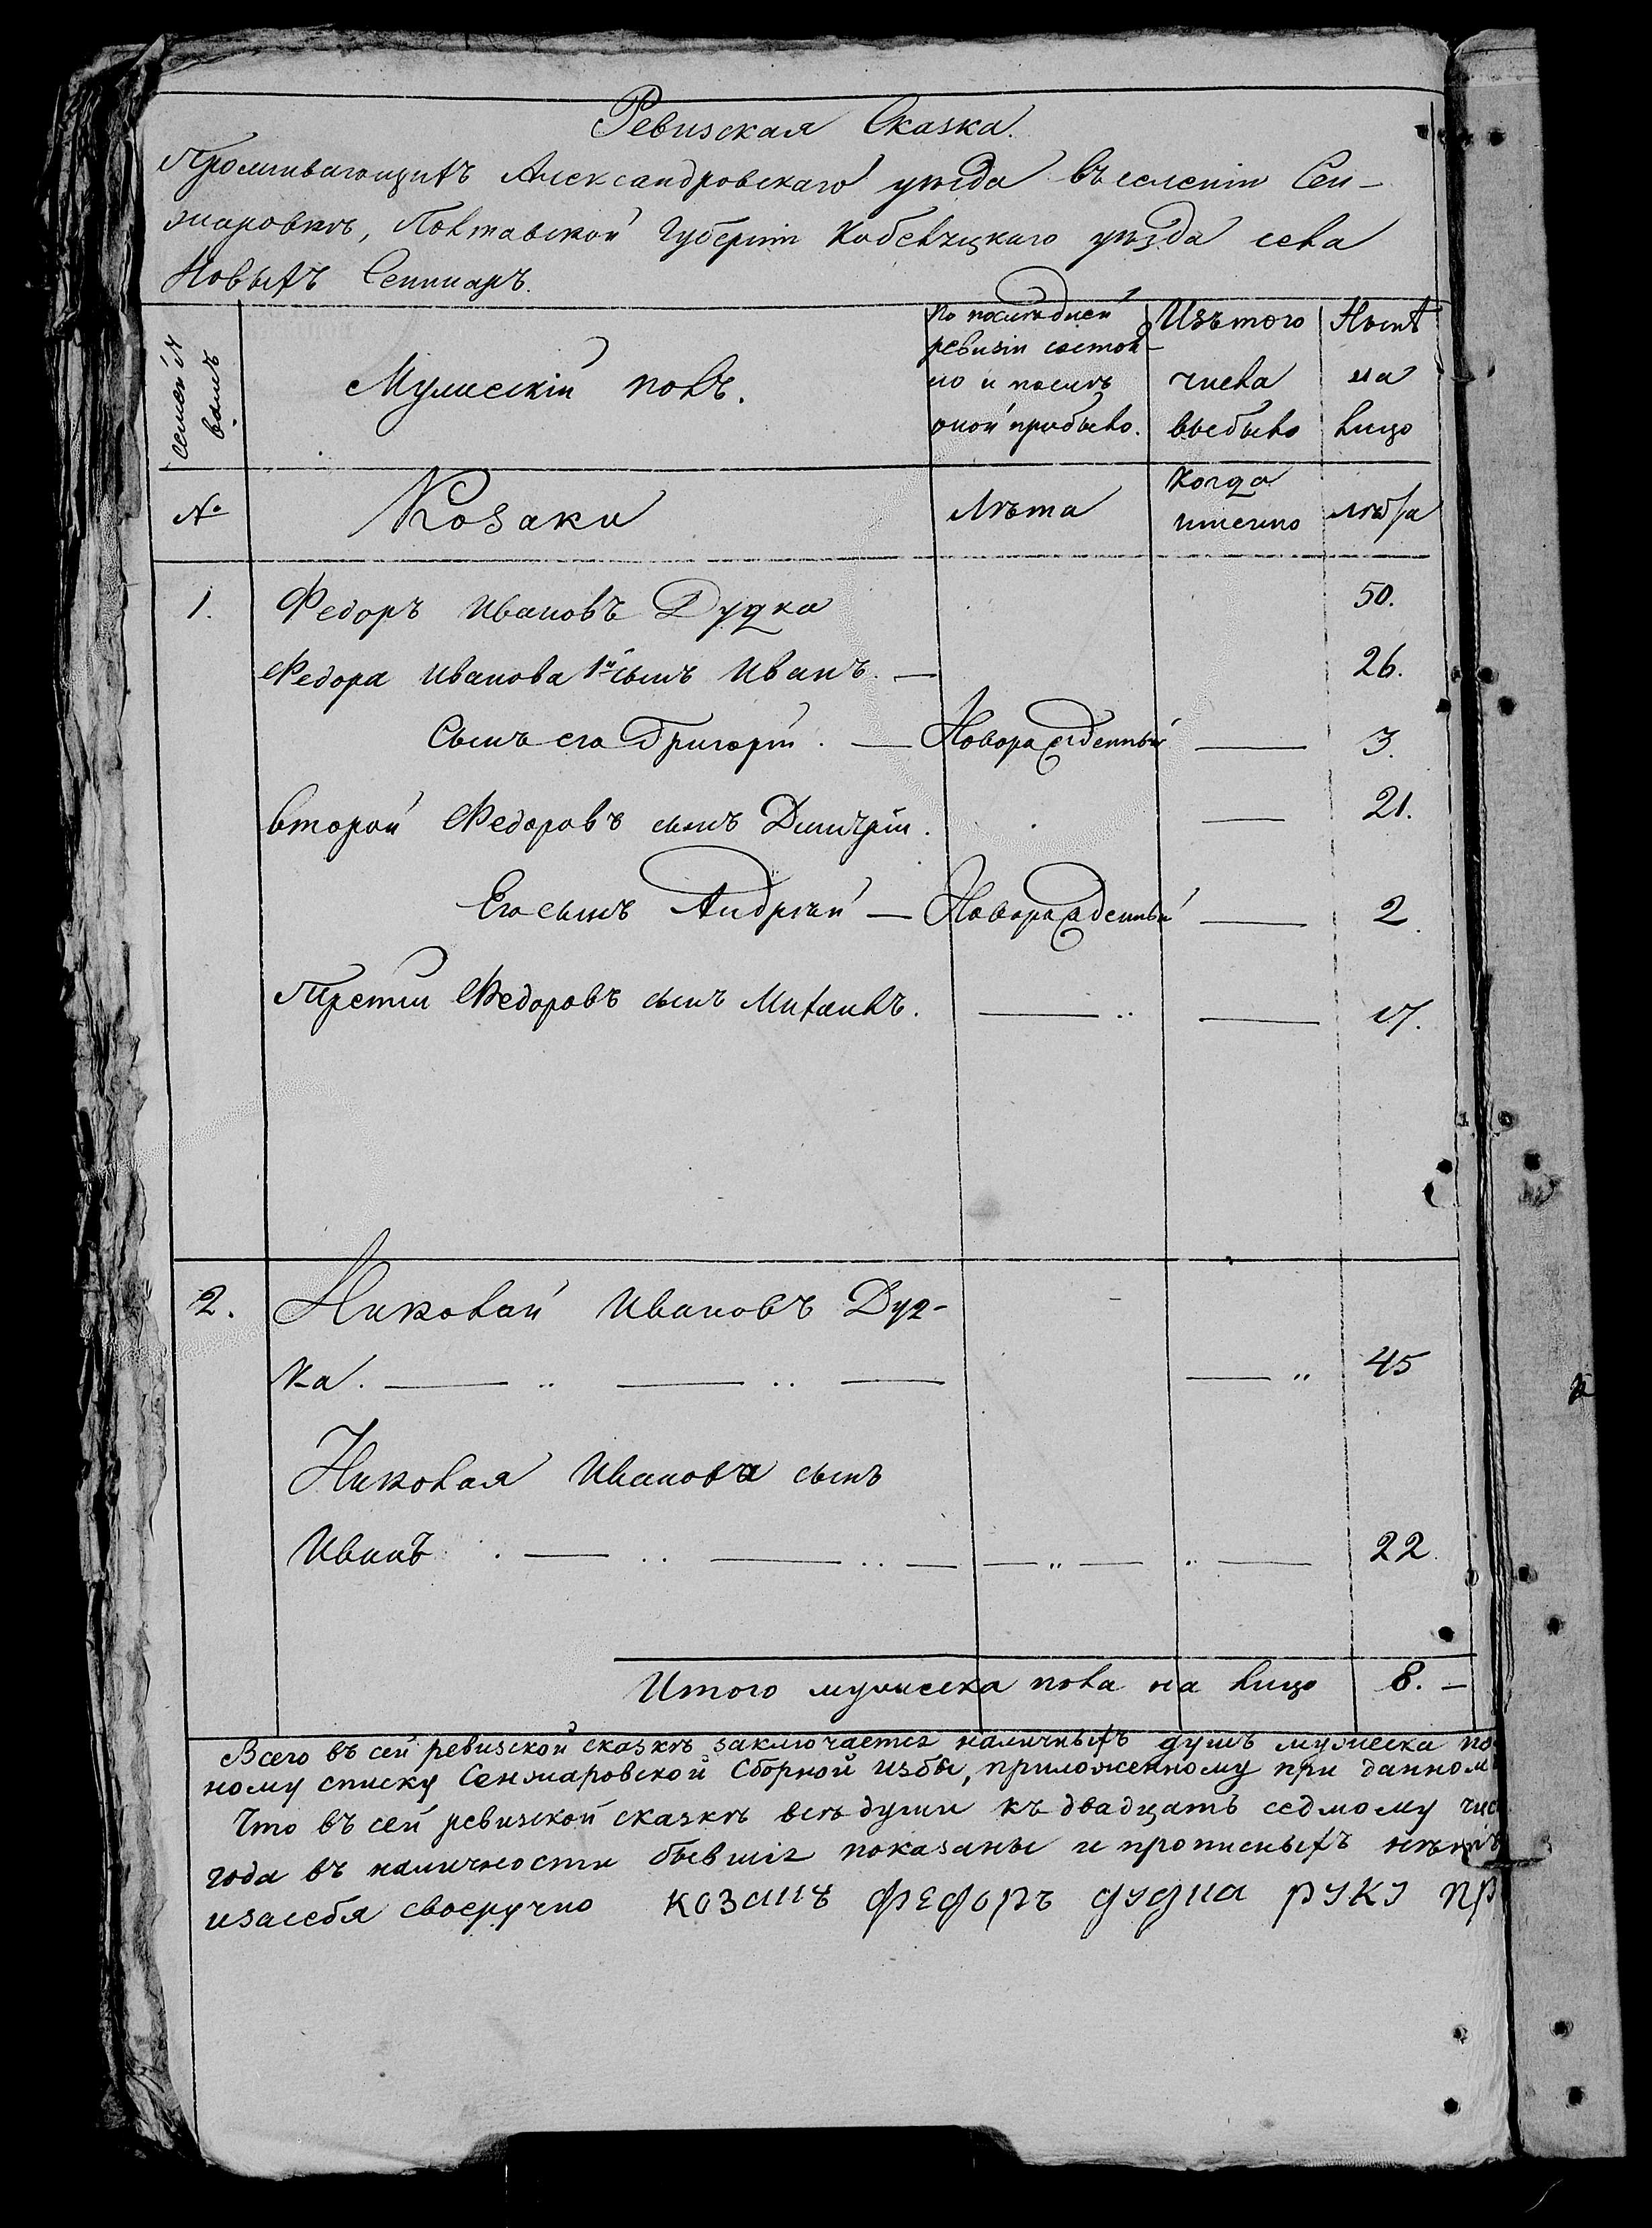 Ревизская Сказка.
Проживающихъ Александровскаго уѣзда въ селеніи Сен-
жаровкѣ, Полтавской Губерніи Кобелуцкаго уѣзда села
Новыхъ Сенжаръ.
По послѣдней Изъ того Нынѣ
ревизіи состоя-
ло и послѣ числа на
Мужескій полъ.
оной прибыло. выбыло лицо
№ Козаки Лѣта Когда именно лѣта
1. Федоръ Ивановъ Дудка 50.
Федора Иванова 1й сынъ Иванъ. — 26.
Сынъ его Григорій. — Новорожденный — 3.
второй Федоровъ сынъ Димитрій. — 21.
Его сынъ Андрѣй — Новорожденный — 2.
Третій Федоровъ сынъ Михаилъ. — .. — 17.
2. Николай Ивановъ Дуд-
ка. — .. — .. — — „ 45
Николая Иванова сынъ
Иванъ . — .. — .. — — „ — .. — 22.
Итого мужеска пола на лицо 8. —
Всего въ сей ревизской сказкѣ заключается наличныхъ душъ мужеска по
ному списку Сенжаровской Сборной избы, приложенному при данном
Что въ сей ревизской сказкѣ всѣ души къ двадцать седмому чис
года въ наличности бывшіе показаны и прописныхъ нѣтъ
изасебя своеручно козакъ федоръ дудка руку пр